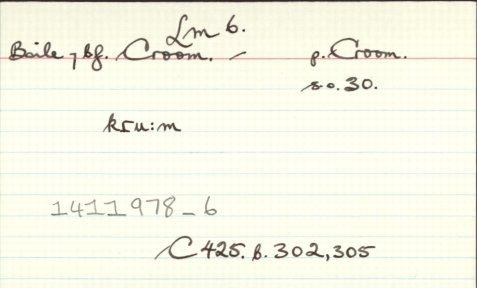 Lm 6.
Baile ⁊ bf. Croom. – p. Croom.
s.o. 30.
kru:m
1411978_6
C 425. b. 302,305